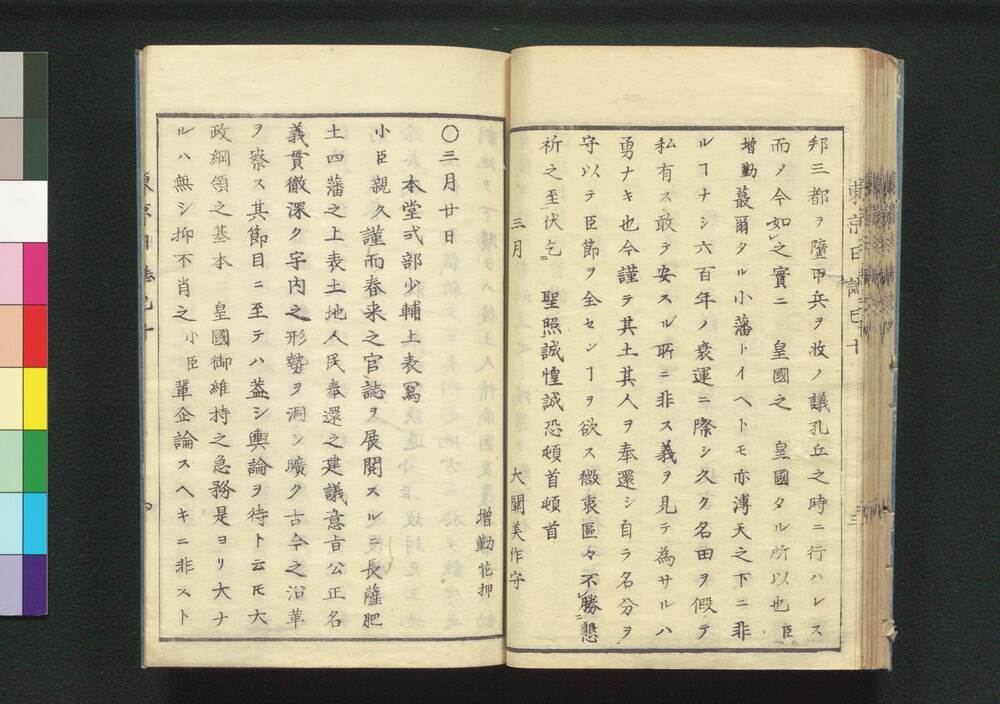 邦三都ヲ墮甲兵ヲ收ノ議孔丘之時ニ行ハレス
而ノ今如之實ニ　皇國之　皇國タル所以也臣
増勤蕞爾タル小藩トイヘトモ亦溥天之下ニ非
ルヿナシ六百年ノ衰運ニ際シ久ク名田ヲ假テ
私有ス敢テ安スル所ニ非ス義ヲ見テ為サルハ
勇ナキ也今謹テ其土其人ヲ奉還シ自ラ名分ヲ
守以テ臣節ヲ全センヿヲ欲ス微衷區々不勝懇
祈之至伏乞　聖照誠惶誠恐頓首頓首
三月　大關美作守
増勤花押
〇三月廿日
本堂弍部少輔上表寫
小臣親久謹而春来之官誌ヲ展閲スルニ長薩肥
土四藩之上表土地人民奉還之建議意旨公正名
義貫徹深ク宇内之形勢ヲ洞シ曠ク古今之沿革
ヲ察ス其節目ニ至テハ蓋シ輿論ヲ待ト云ヒ大
政綱領之基本　皇國御維持之急務是ヨリ大ナ
ルハ無シ抑不肖之小臣輩企論スヘキニ非スト
東京日誌巳十
三